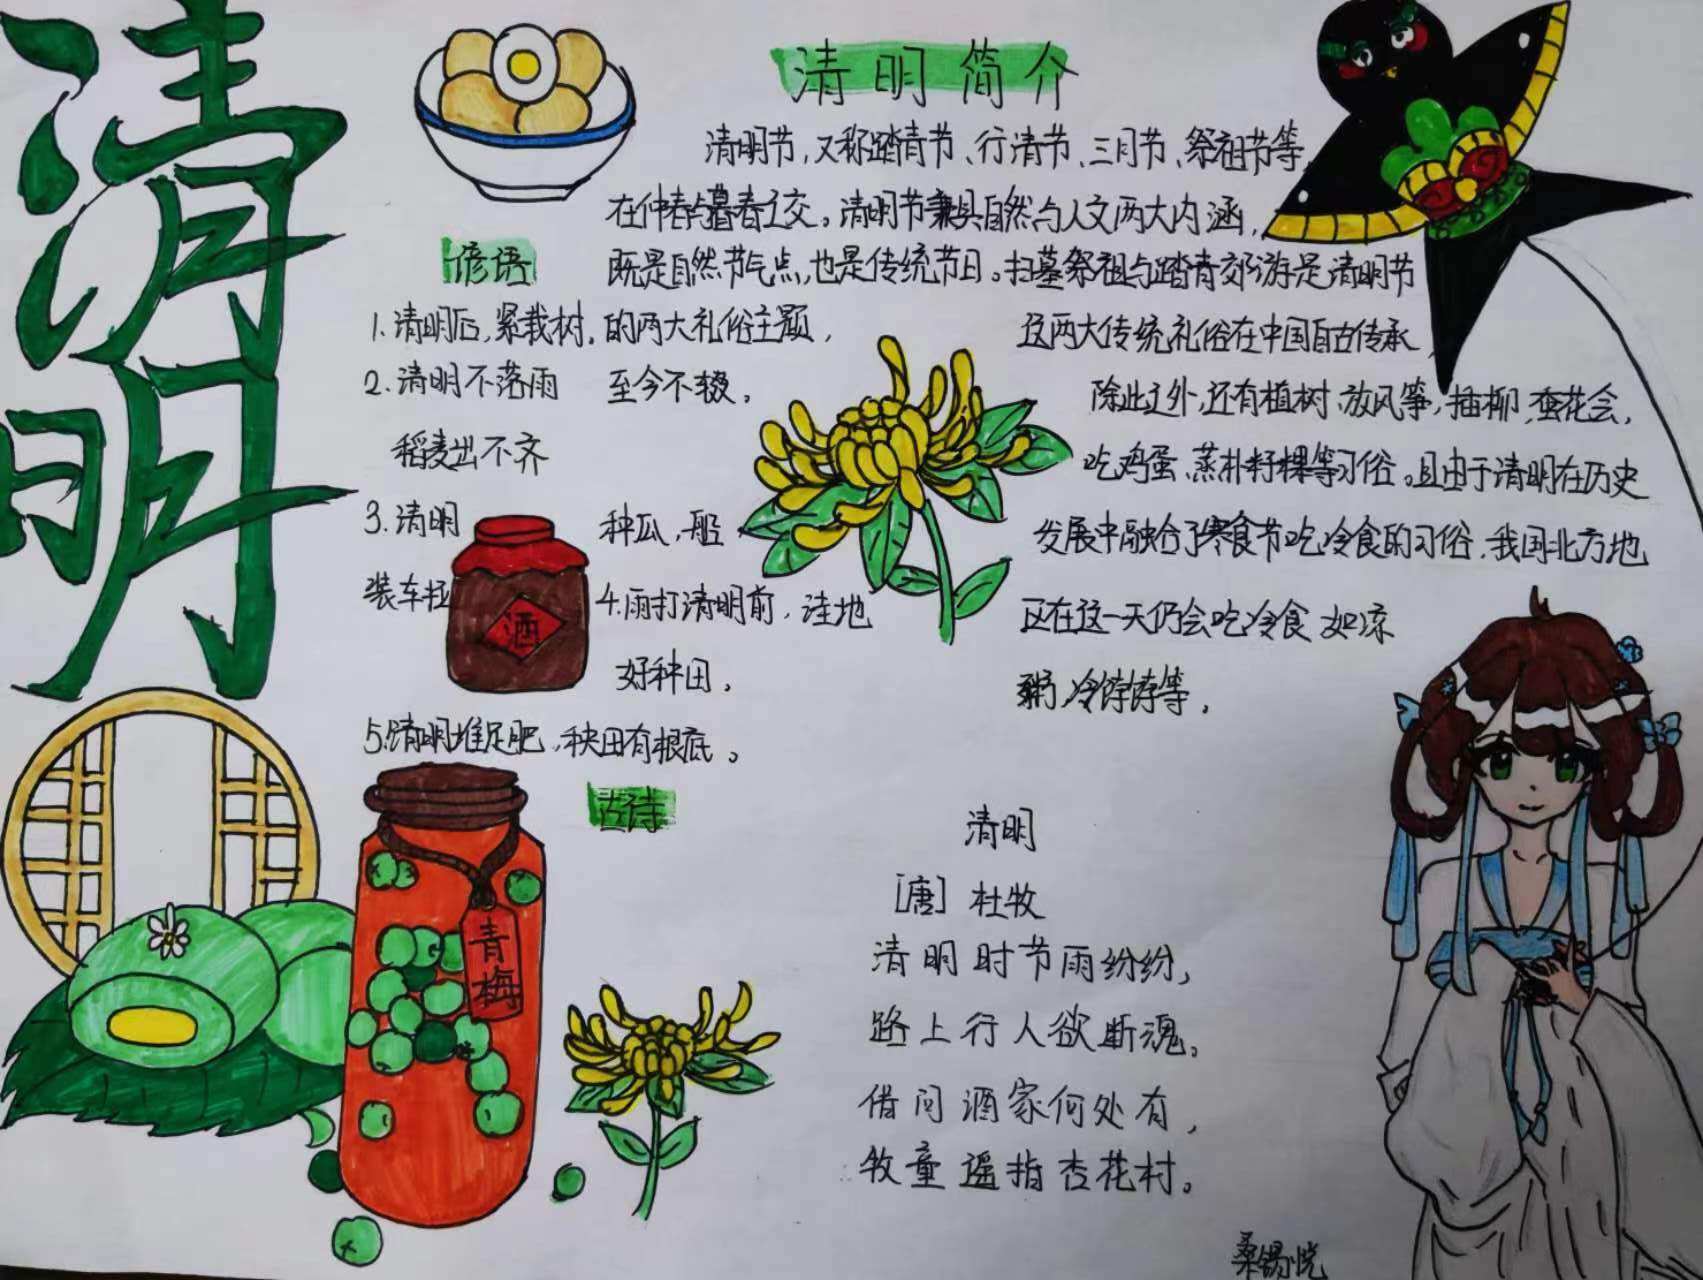 清明
清明简介
清明节，又称踏青节、行清节、三月节、祭祖节等，
在仲春与暮春之交。清明节兼具自然与人文两大内涵，
既是自然节气点，也是传统节日。扫墓祭祖与踏青郊游是清明节
的两大礼俗主题，这两大传统礼俗在中国自古传承，
至今不辍。
除此之外，还有植树、放风筝，插柳，蚕花会，
吃鸡蛋、蒸朴籽粿等习俗。且由于清明在历史
发展中融合了寒食节吃冷食的习俗，我国北方地
区在这一天仍会吃冷食 如凉
粥，冷饽饽等。
谚语
1.清明后，紧栽树。
2.清明不落雨
稻麦出不齐
3.清明 种瓜，船
装车拉
4.雨打清明前，洼地
好种田。
5.清明堆足肥，秧田有根底。
酒
青梅
古诗
清明
[唐] 杜牧
清明时节雨纷纷，
路上行人欲断魂。
借问酒家何处有，
牧童遥指杏花村。